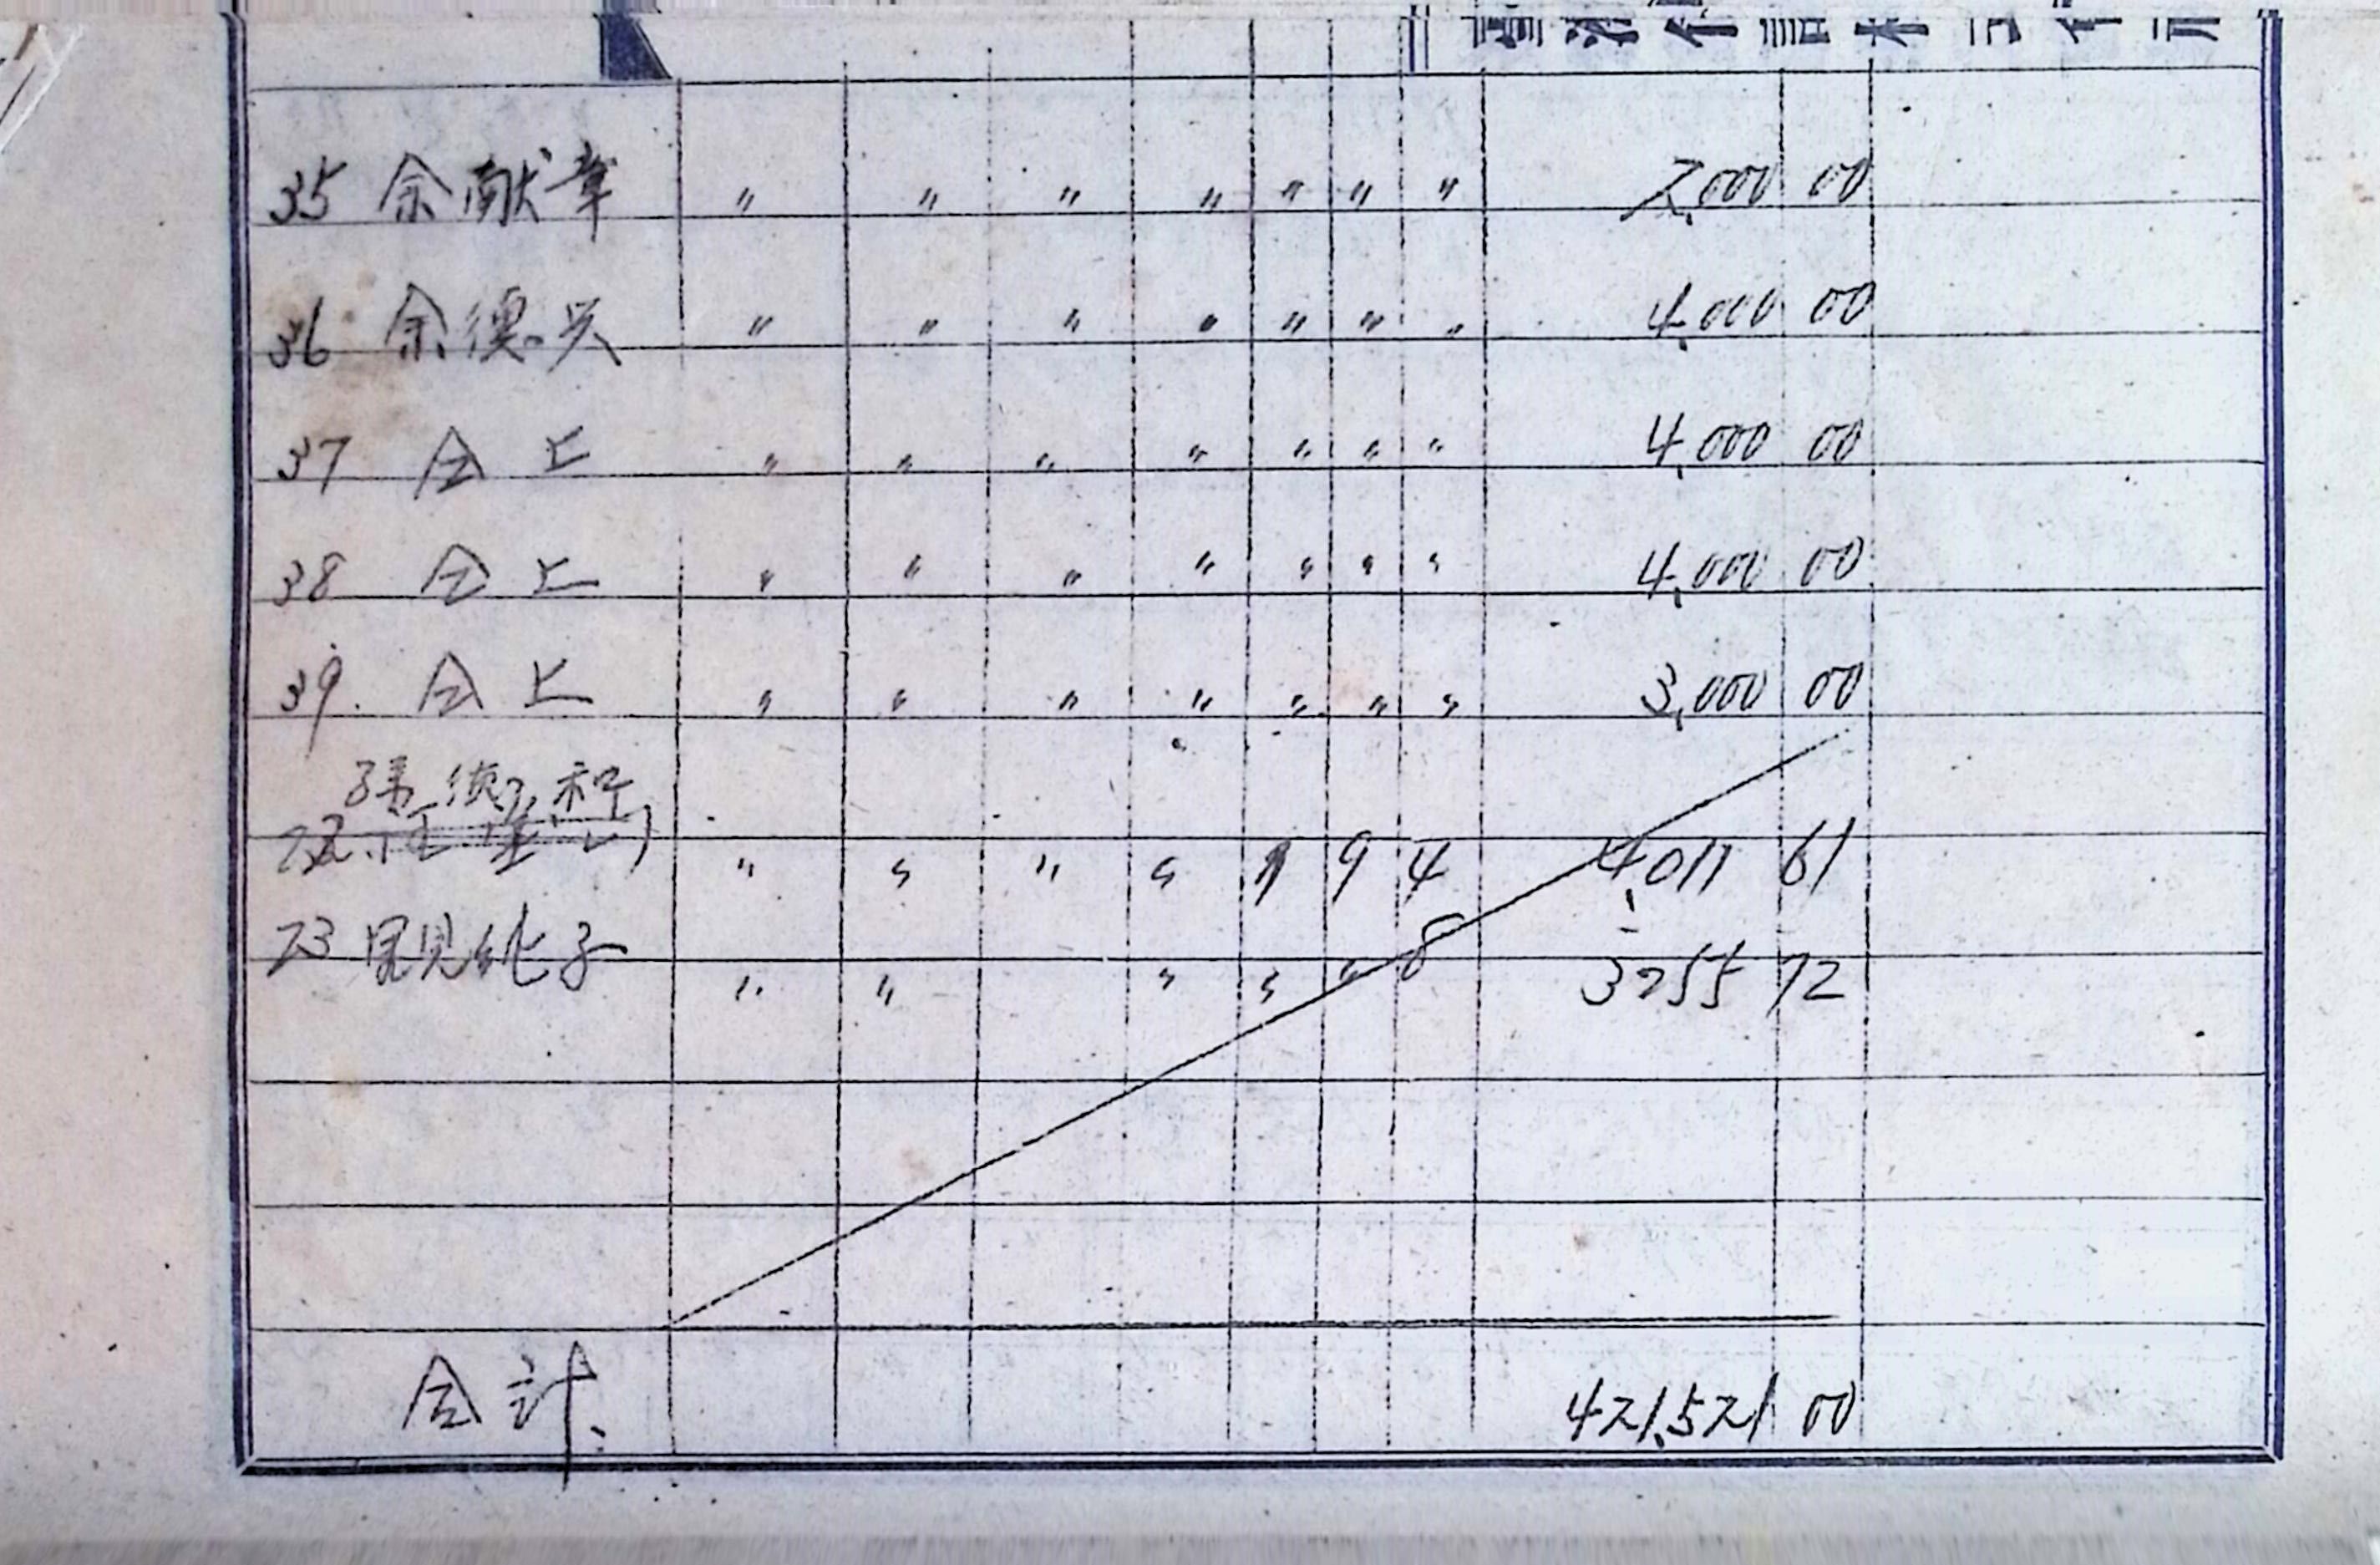 35 余献章 〃 〃 〃 〃 〃 〃 〃 2,000 00
36 余德兴 〃 〃 〃 〃 〃 〃 〃 4,000 00
37 仝上 〃 〃 〃 〃 〃 〃 〃 4,000 00
38 仝上 〃 〃 〃 〃 〃 〃 〃 4,000 00
39. 仝上 〃 〃 〃 〃 〃 〃 〃 3,000 00
〃 〃 〃 〃 9 4 4,011 61
23 〃 〃 〃 〃 〃 8 3255 72
合計 421,521 00